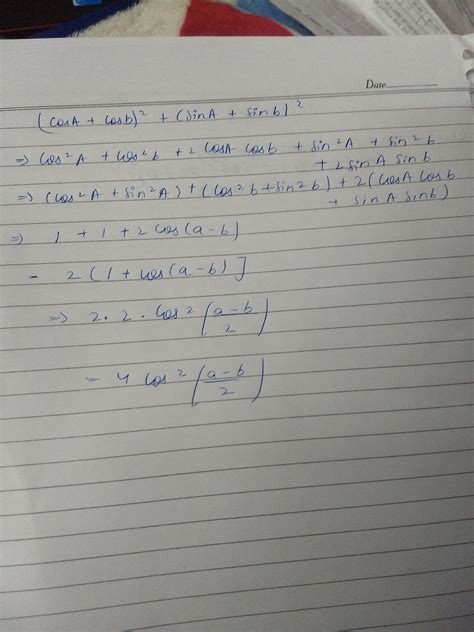 Date...............
(cosA + cosb)² + (sinA + sinb)²
⇒ cos²A + cos²b + 2 cosA cosb + sin²A + sin²b
+ 2 sinA sinb
⇒ (cos²A + sin²A) + (cos²b + sin²b) + 2(cosA cosb
+ sinA sinb)
⇒ 1 + 1 + 2 cos(a-b)
- 2 (1 + cos(a-b)]
⇒ 2 · 2 · cos² (a-b/2)
= 4 cos² (a-b/2)